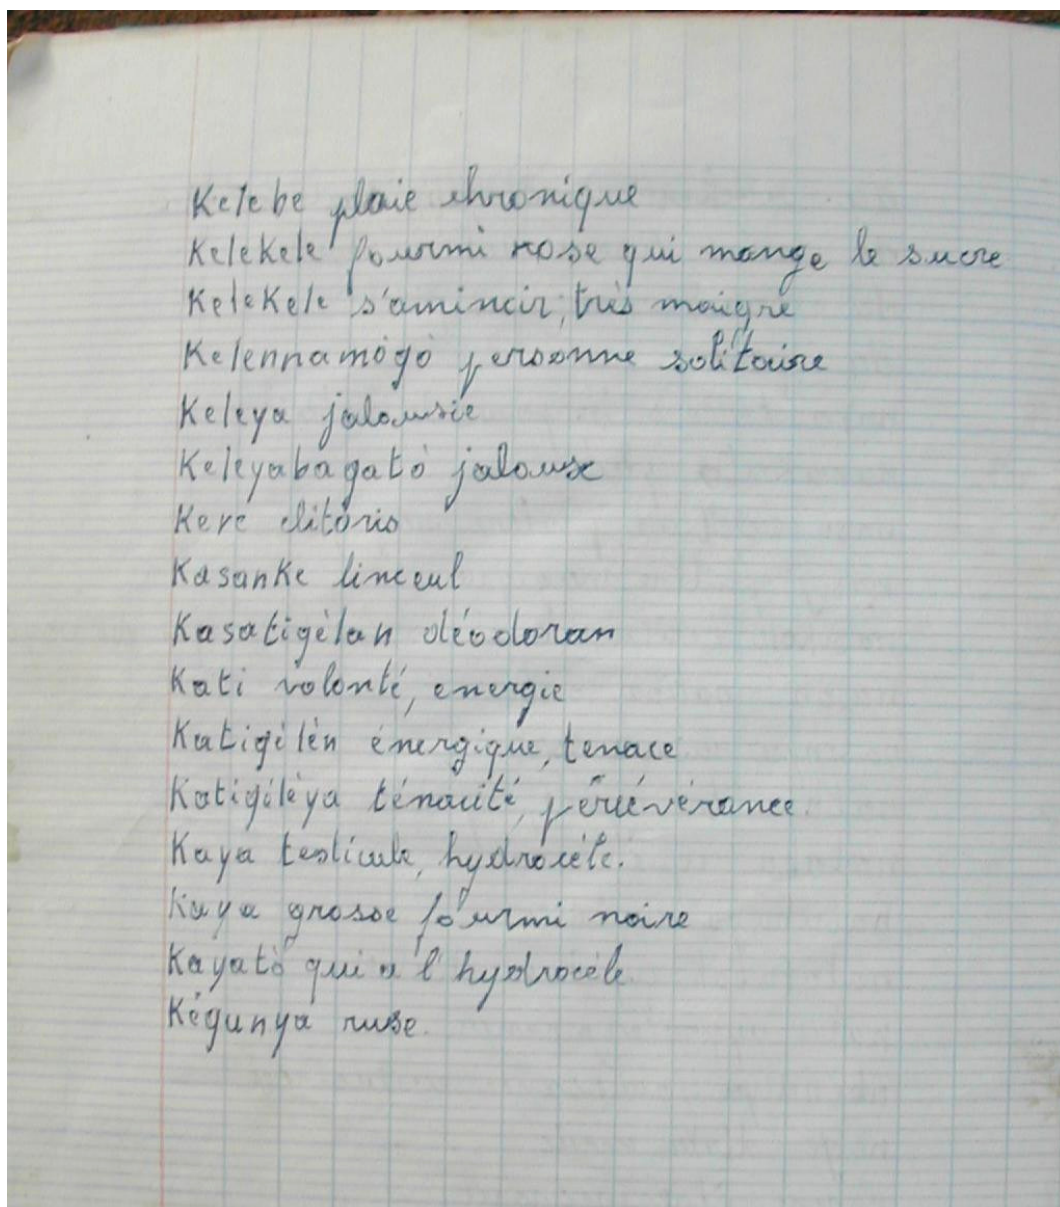 Kelebe plaie chronique
Kelekele fourmi rose qui mange le sucre
Kelekele s'amincir, très maigre
Kelennamògò personne solitaire
Keleya jalousie
Keleyabagatò jalouse
Kere clitoris
Kasanke linceul
Kasatigèlan déodoran
Kati volonté, energie
Katigèlèn énergique, tenace
Katigèlèya ténacité,
Kaya testicule, hydrocèle.
Kaya grosse fourmi noire
Kayatò qui a l'hydrocèle
Kègunya ruse.